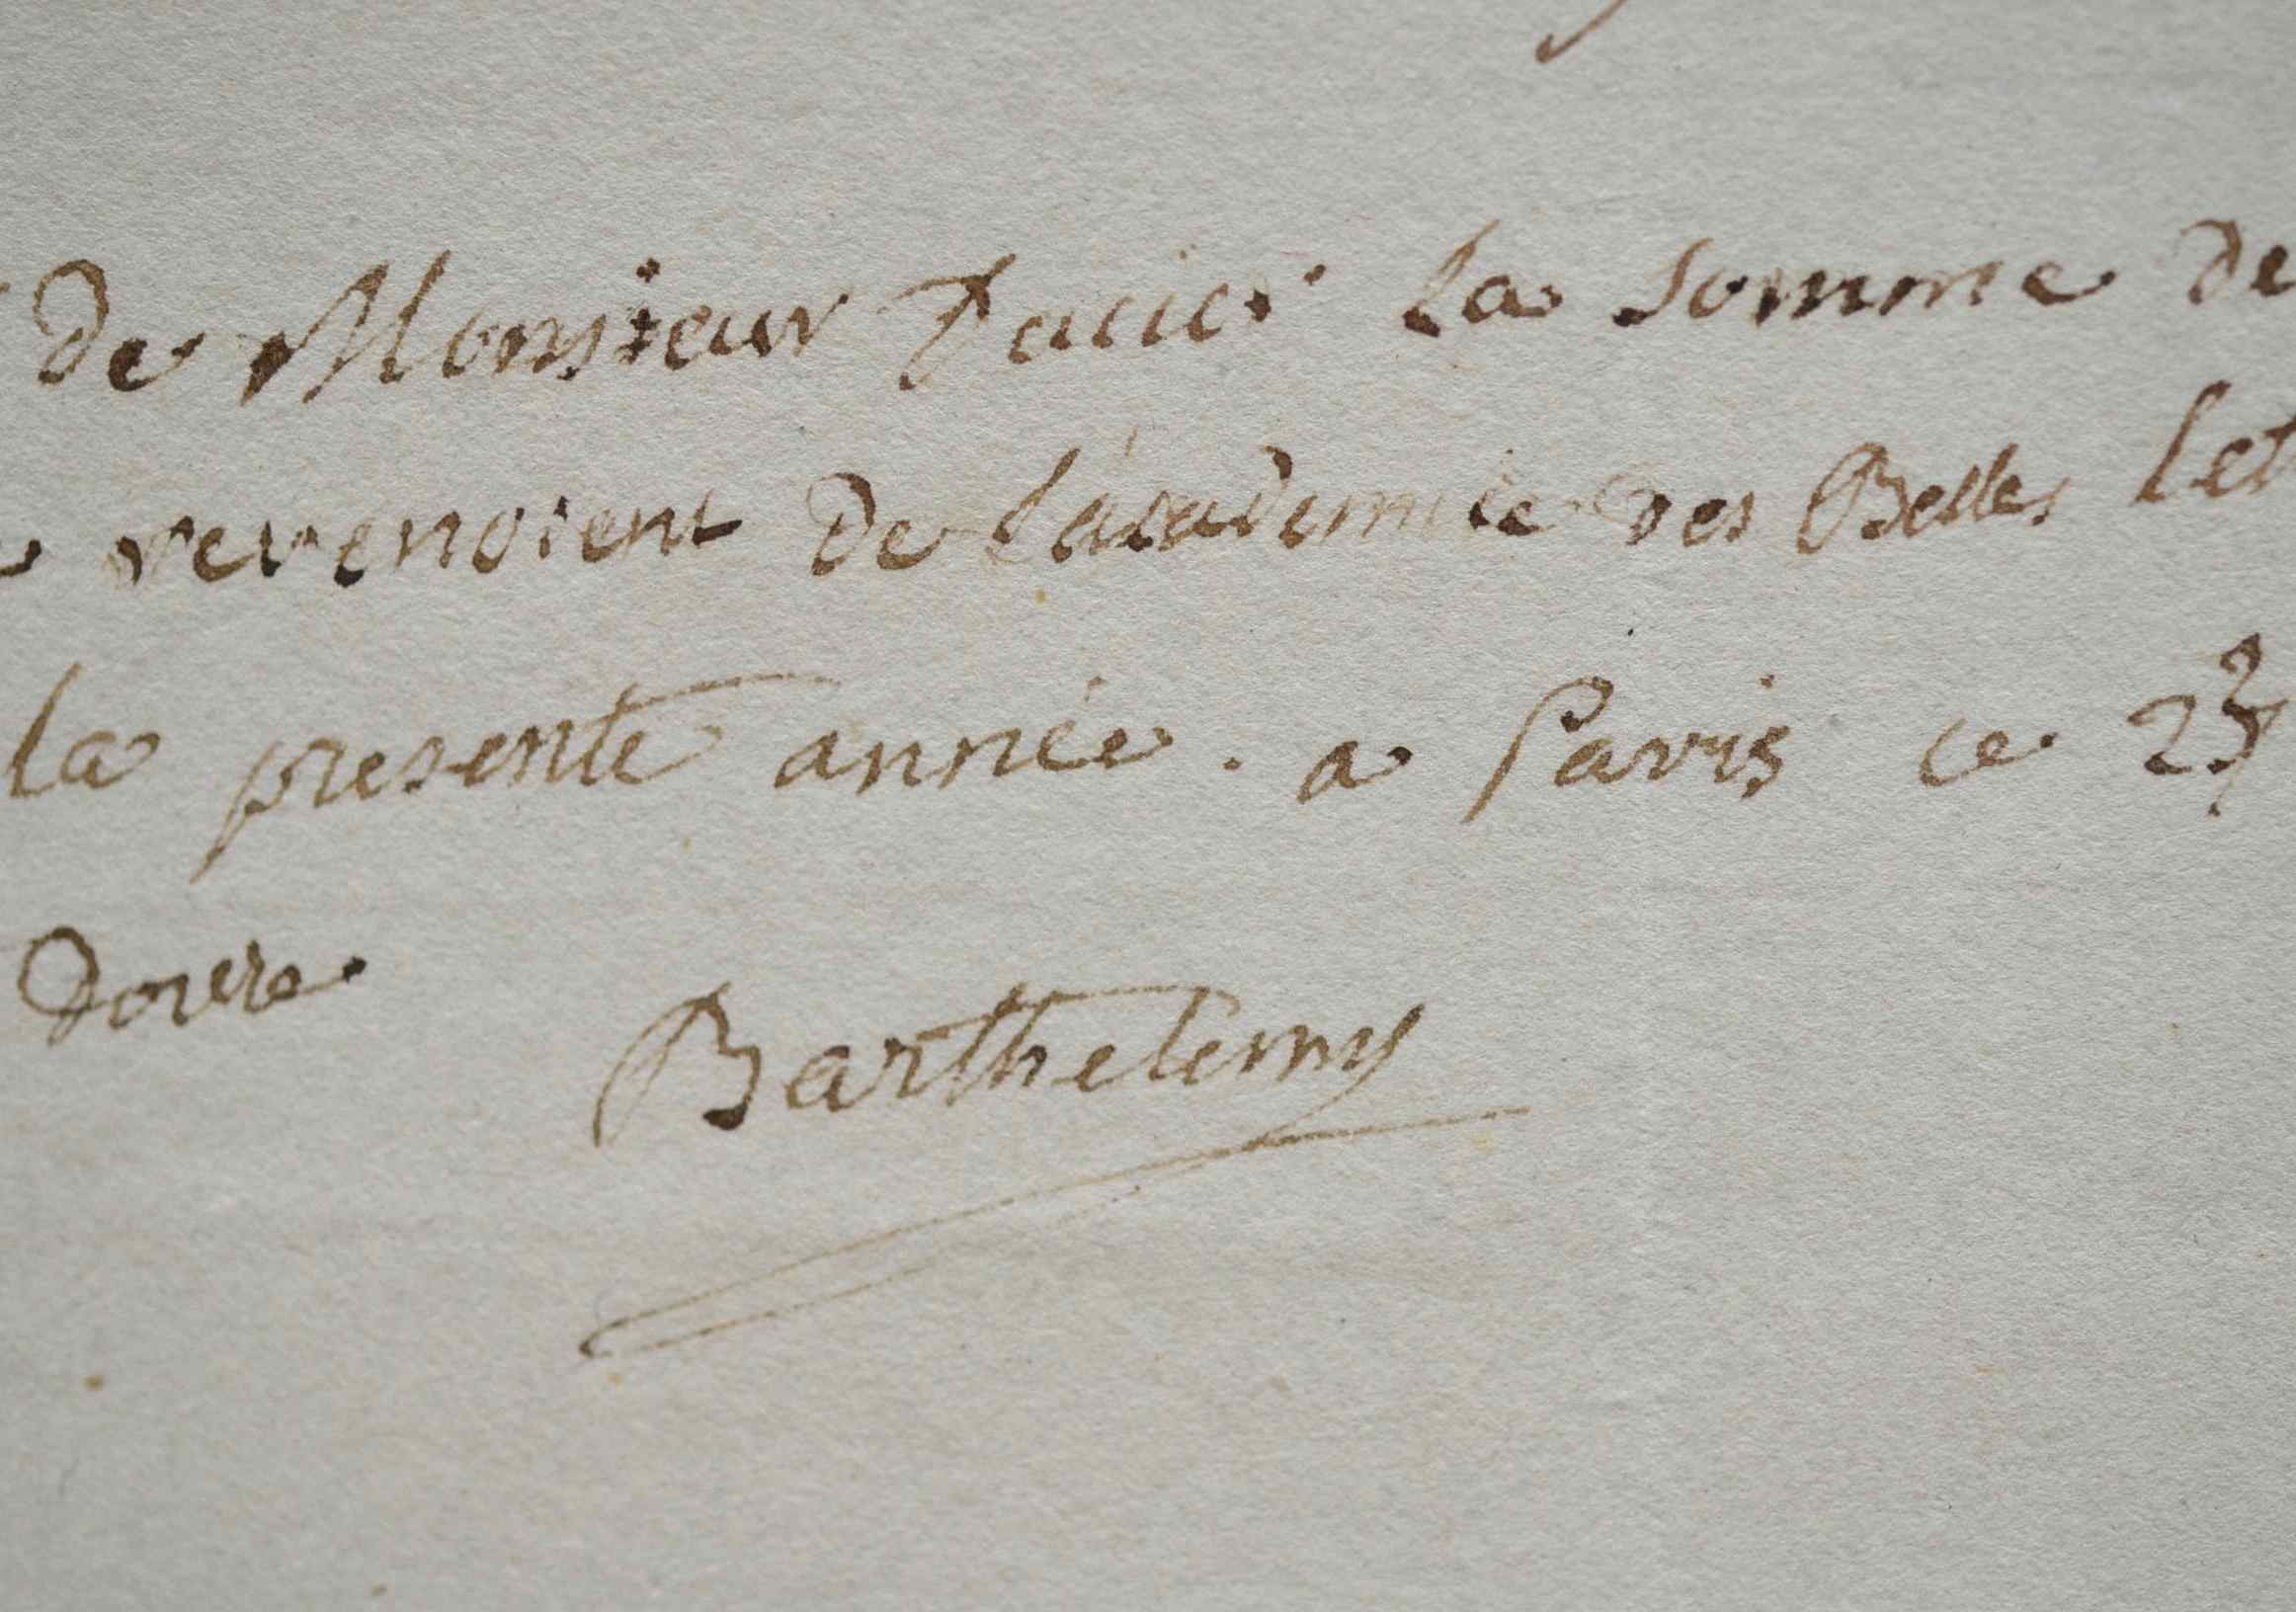 de Monsieur Dacier la somme de
revenoient de l'academie des Belles Let
la presente année . a Paris ce 23
douze
Barthelemy